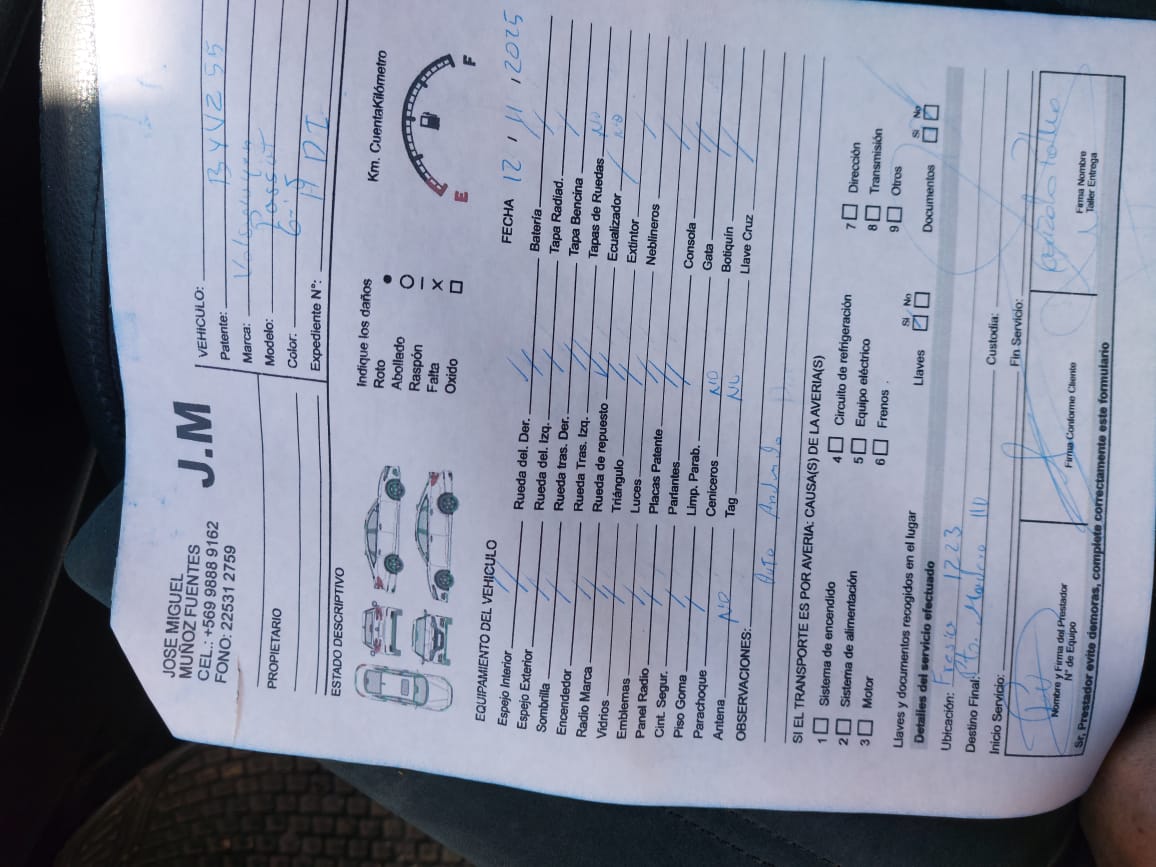 JOSE MIGUEL
MUÑOZ FUENTES
CEL.: +569 9888 9162
FONO: 22531 2759
J.M
VEHICULO:
Patente: BYVZ 55
Marca: Volkswagen
Modelo: Passat
Color:
Expediente N°:
PROPIETARIO
ESTADO DESCRIPTIVO
Indique los daños
Roto ●
Abollado ○
Raspón –
Falta ×
Oxido □
Km. CuentaKilómetro
E F
EQUIPAMIENTO DEL VEHICULO
FECHA 12 / 11 / 2025
Espejo Interior Rueda del. Der. Batería
Espejo Exterior Rueda del. Izq. Tapa Radiad.
Sombrilla Rueda tras. Der. Tapa Bencina
Encendedor Rueda Tras. Izq. Tapas de Ruedas NO
Radio Marca Rueda de repuesto Ecualizador NO
Vidrios Triángulo Extintor
Emblemas Luces Neblineros
Panel Radio Placas Patente
Cint. Segur. Parlantes Consola
Piso Goma Limp. Parab. Gata
Parachoque Ceniceros NO Botiquín
Antena NO Tag NO Llave Cruz
OBSERVACIONES:
Auto Andando
SI EL TRANSPORTE ES POR AVERIA: CAUSA(S) DE LA AVERIA(S)
1 □ Sistema de encendido 4 □ Circuito de refrigeración 7 □ Dirección
2 □ Sistema de alimentación 5 □ Equipo eléctrico 8 □ Transmisión
3 □ Motor 6 □ Frenos 9 □ Otros
Llaves y documentos recogidos en el lugar Llaves Si No Documentos Si No
Detalles del servicio efectuado
Ubicación: 1223
Destino Final:
Inicio Servicio: Custodia: Fin Servicio:
Nombre y Firma del Prestador
N° de Equipo
Firma Conforme Cliente
Firma Nombre
Taller Entrega
Sr. Prestador evite demoras, complete correctamente este formulario